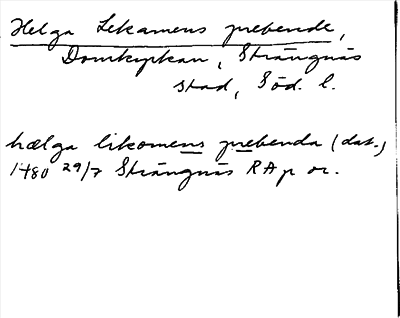 Helga Lekamens prebende,
Domkyrkan, Strängnäs
stad, Söd. l.
hælga likomens prebenda (dat.)
1480 29/7 Strängnäs RAp or.